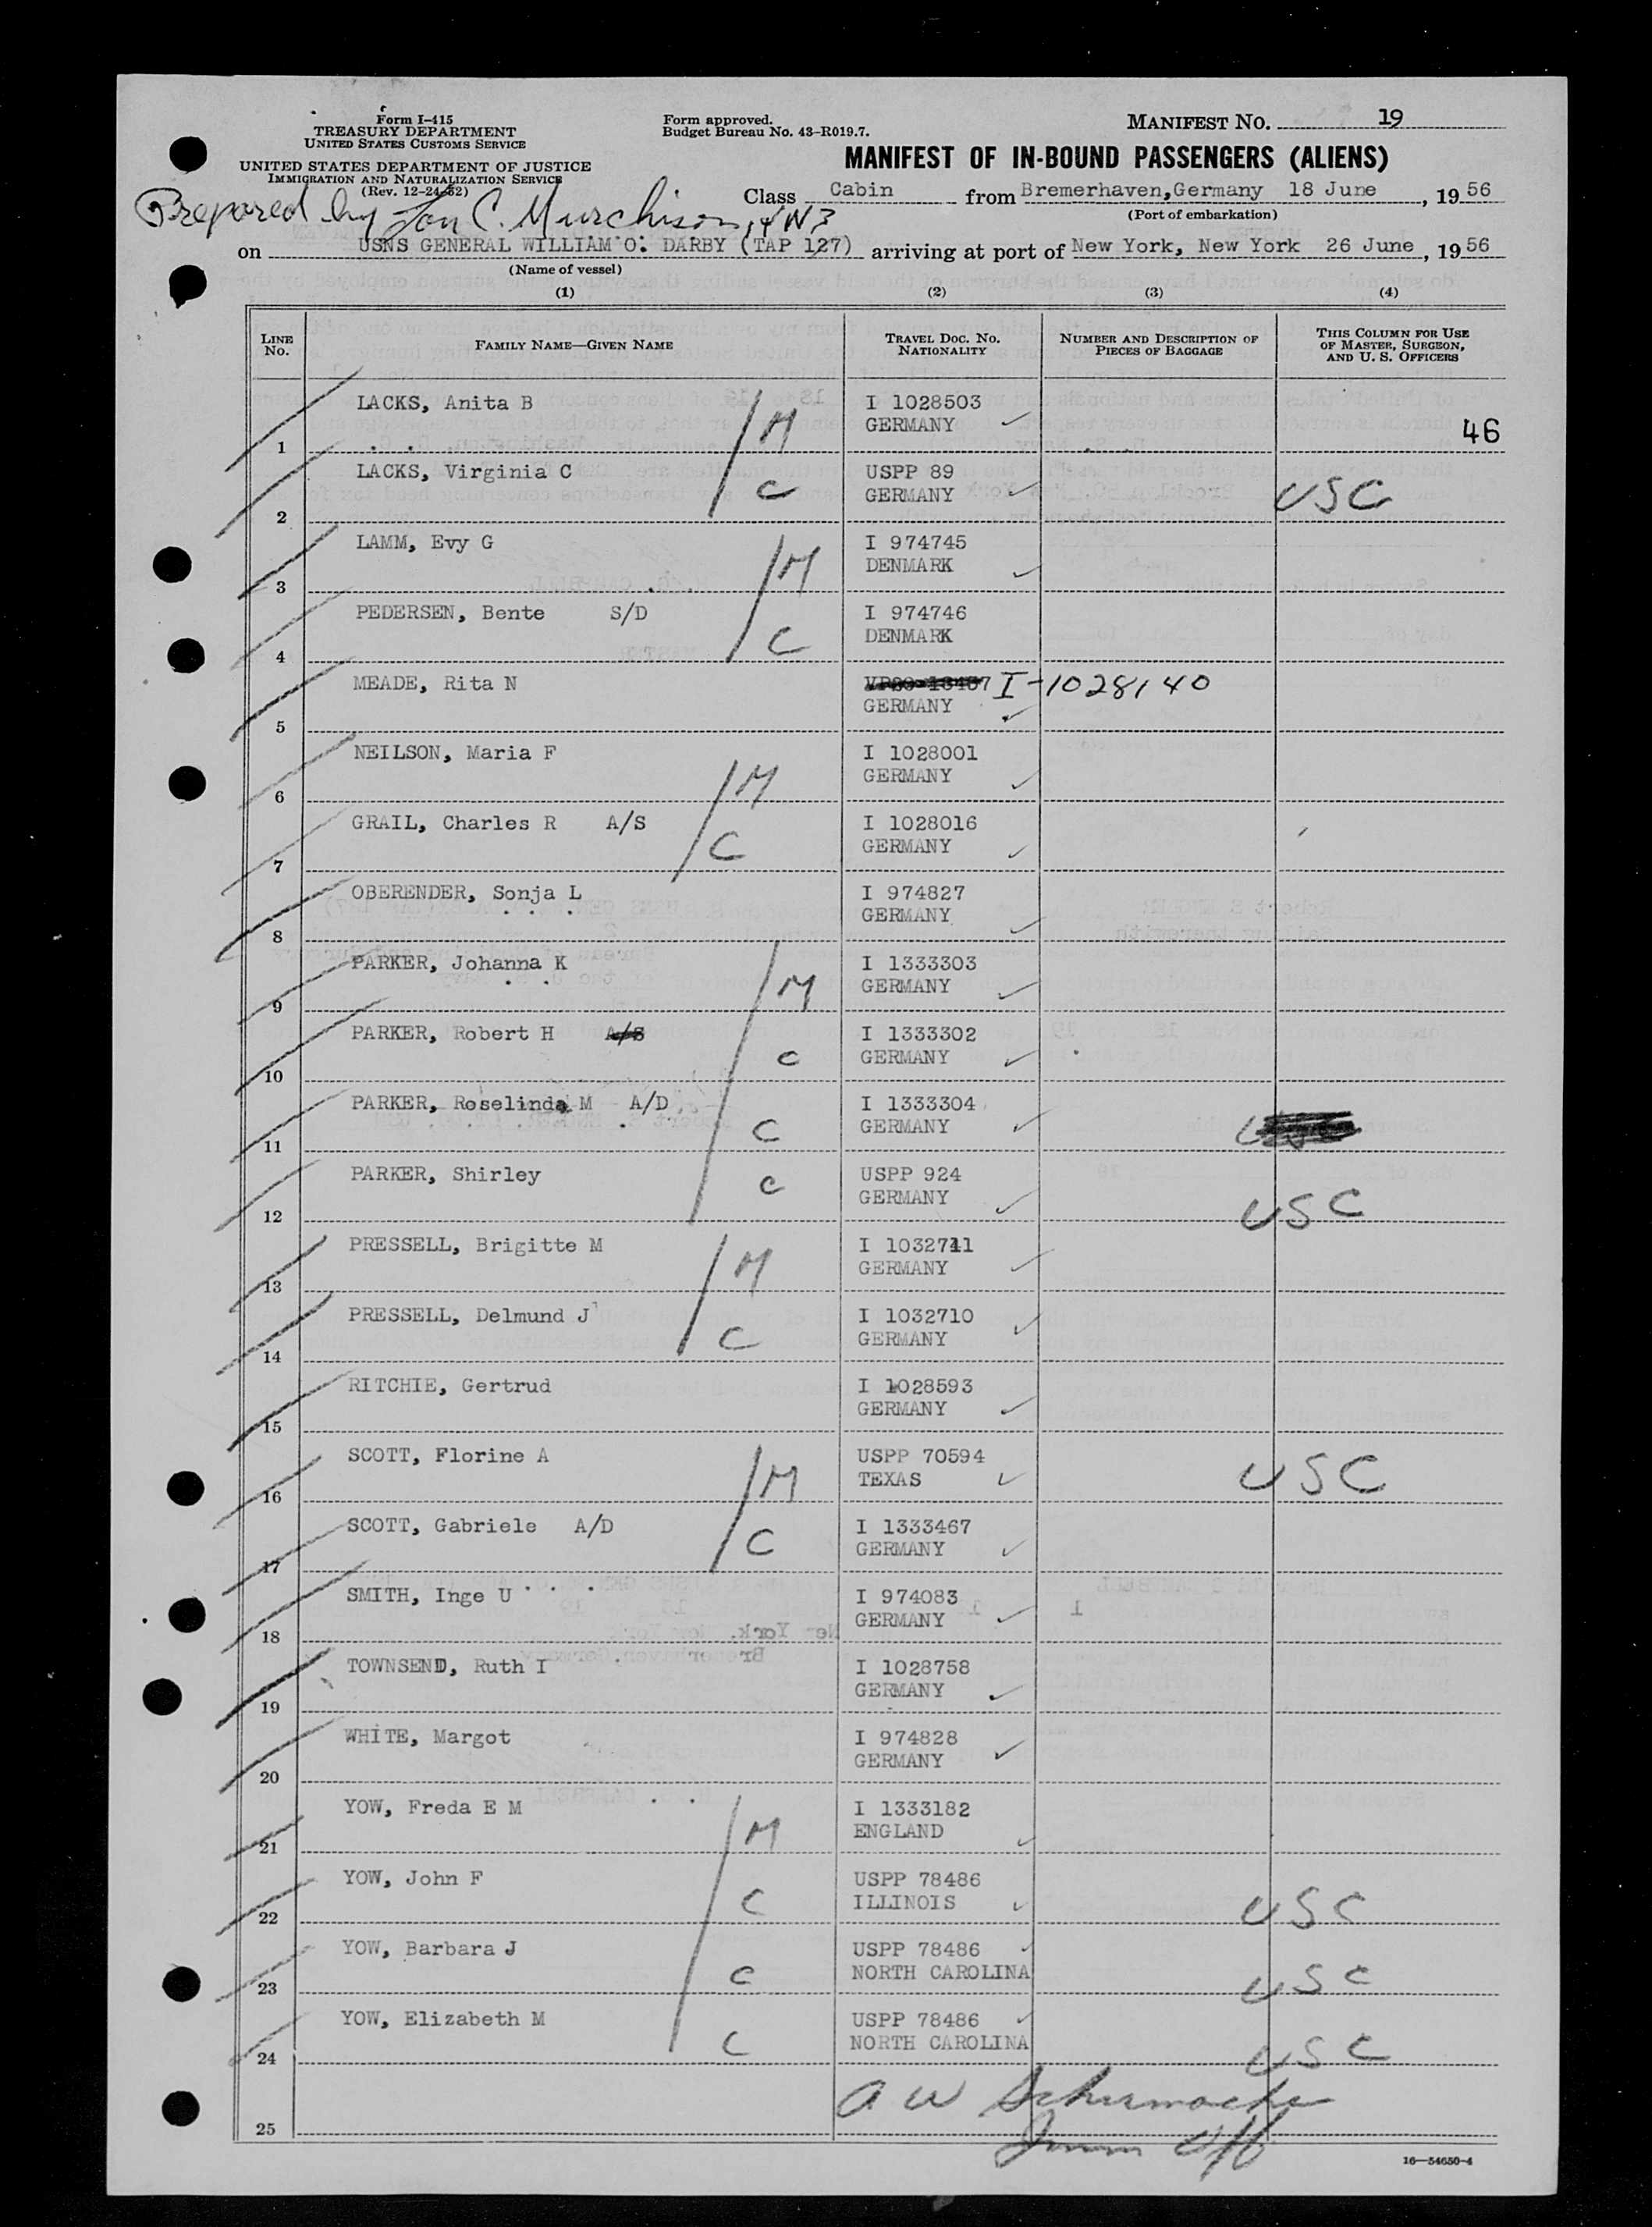 Form I-415
TREASURY DEPARTMENT
UNITED STATES CUSTOMS SERVICE
UNITED STATES DEPARTMENT OF JUSTICE
IMMIGRATION AND NATURALIZATION SERVICE
(Rev. 12-24-52)
Form approved.
Budget Bureau No. 43-R019.7.
MANIFEST NO. 19
MANIFEST OF IN-BOUND PASSENGERS (ALIENS)
Class Cabin from Bremerhaven, Germany 18 June, 1956
(Port of embarkation)
Prepared by C. Murchison
on USNS GENERAL WILLIAM O. DARBY (TAP 127) arriving at port of New York, New York 26 June, 1956
(Name of vessel)
(1) (2) (3) (4)
LINE NO. FAMILY NAME—GIVEN NAME TRAVEL DOC. NO. NATIONALITY NUMBER AND DESCRIPTION OF PIECES OF BAGGAGE THIS COLUMN FOR USE OF MASTER, SURGEON, AND U. S. OFFICERS
LACKS, Anita B M I 1028503
1 GERMANY 46
LACKS, Virginia C C USPP 89
2 GERMANY USC
LAMM, Evy G M I 974745
3 DENMARK
PEDERSEN, Bente S/D C I 974746
4 DENMARK
MEADE, Rita N I-1028140
5 GERMANY
NEILSON, Maria F M I 1028001
6 GERMANY
GRAIL, Charles R A/S C I 1028016
7 GERMANY
OBERENDER, Sonja L I 974827
8 GERMANY
PARKER, Johanna K M I 1333303
9 GERMANY
PARKER, Robert H A/S C I 1333302
10 GERMANY
PARKER, Roselinda M A/D C I 1333304
11 GERMANY
PARKER, Shirley C USPP 924
12 GERMANY USC
PRESSELL, Brigitte M M I 1032711
13 GERMANY
PRESSELL, Delmund J C I 1032710
14 GERMANY
RITCHIE, Gertrud I 1028593
15 GERMANY
SCOTT, Florine A M USPP 70594
16 TEXAS USC
SCOTT, Gabriele A/D C I 1333467
17 GERMANY
SMITH, Inge U I 974083
18 GERMANY
TOWNSEND, Ruth I I 1028758
19 GERMANY
WHITE, Margot I 974828
20 GERMANY
YOW, Freda E M M I 1333182
21 ENGLAND
YOW, John F C USPP 78486
22 ILLINOIS USC
YOW, Barbara J C USPP 78486
23 NORTH CAROLINA USC
YOW, Elizabeth M C USPP 78486
24 NORTH CAROLINA USC
A W Schumacher
25 Imm Off
16—54650-4